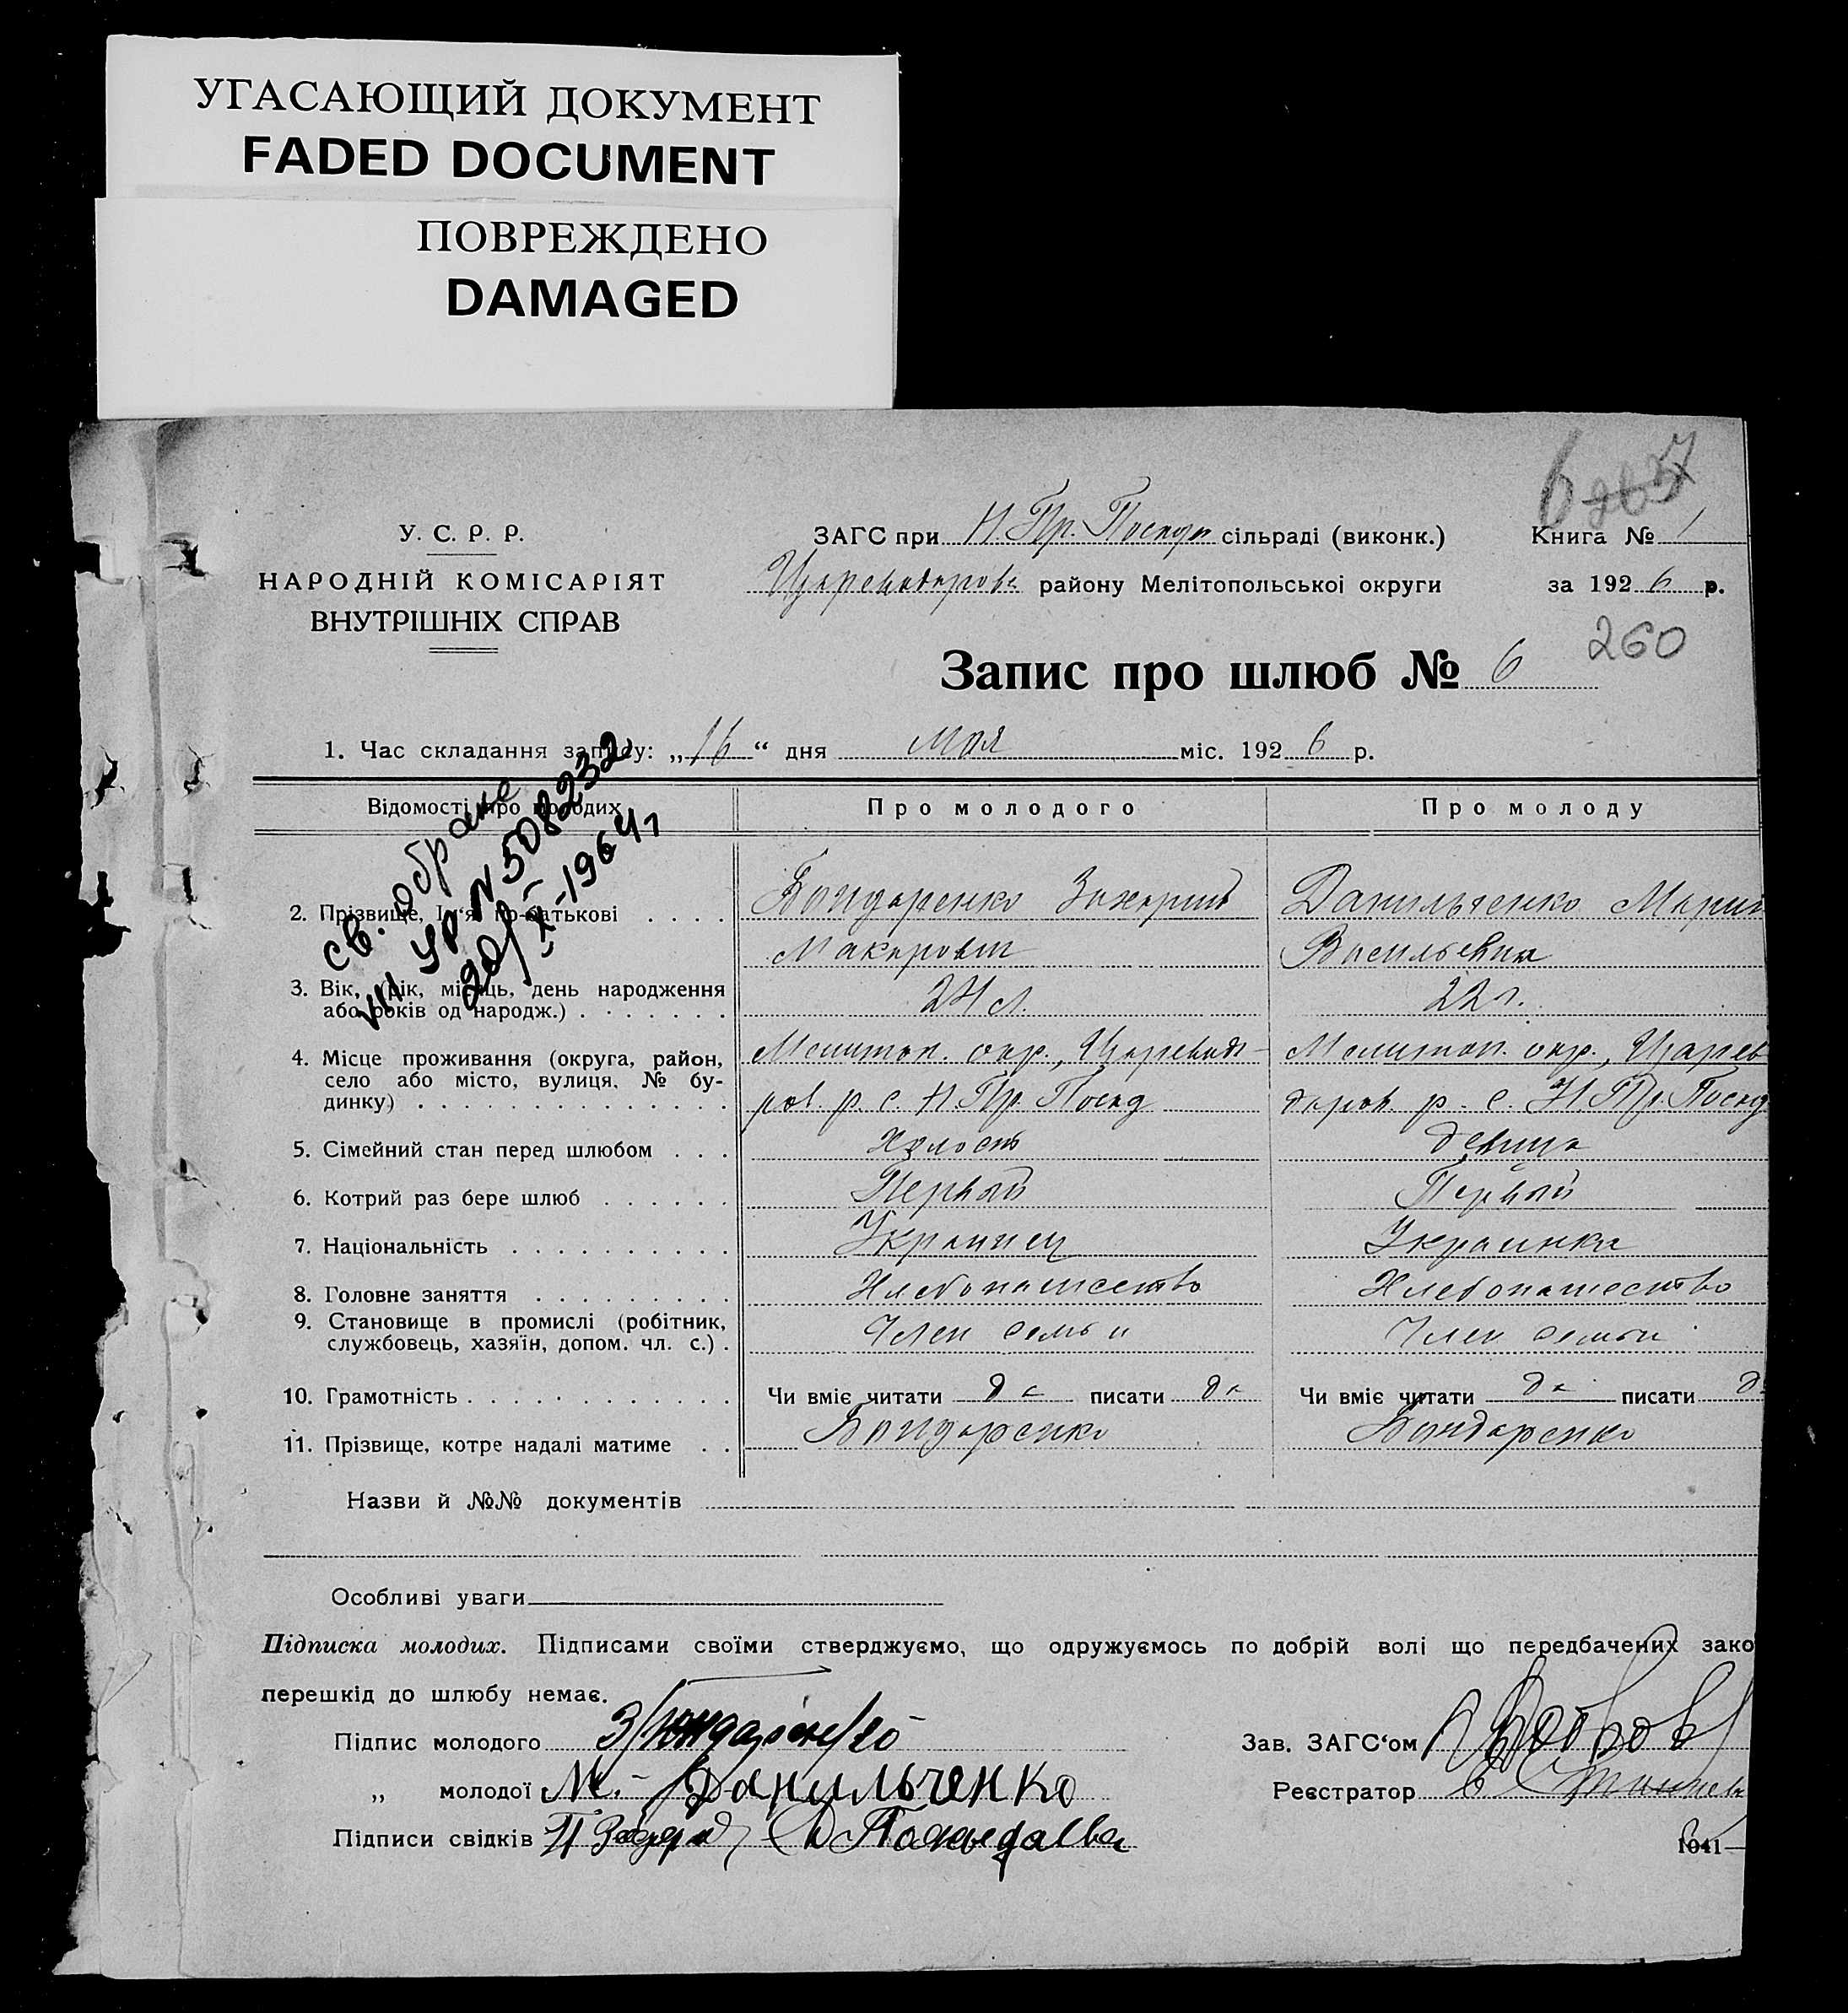 УГАСАЮЩИЙ ДОКУМЕНТ
FADED DOCUMENT
ПОВРЕЖДЕНО
DAMAGED
У. С. Р. Р.
НАРОДНІЙ КОМІСАРІЯТ
ВНУТРІШНІХ СПРАВ
ЗАГС при Н. Пр. Посади сільраді (виконк.)
Царевдаровс району Мелітопольської округи
6
Книга № 1
за 1926 р.
260
Запис про шлюб № 6
1. Час складання запису: „16“ дня мая міс. 1926 р.
св. обране
УР N 508232
Відомості про молодих
Про молодого
Про молоду
2. Прізвище, Ім‘я, по-батькові
Бондаренко Захарий
Макарович
Данильченко Мария
Васильевна
3. Вік, (рік, місяць, день народження
або років од народж.)
24 л.
22 г.
4. Місце проживання (округа, район,
село або місто, вулиця, № бу-
динку)
Мелитоп. окр., Царевда-
ров. р. с. Н Пр. Посад
Мелитоп. окр., Царев
даров. р. с. Н. Пр. Посад
5. Сімейний стан перед шлюбом
Холост
девица
6. Котрий раз бере шлюб
Первый
Первый
7. Національність
Украинец
Украинка
8. Головне заняття
Хлебопашество
Хлебопашество
9. Становище в промислі (робітник,
службовець, хазяїн, допом. чл. с.)
Член семьи
Член семьи
10. Грамотність
Чи вміє читати да писати да
Чи вміє читати да писати да
11. Прізвище, котре надалі матиме
Бондаренко
Бондаренко
Назви й №№ документів
Особливі уваги
Підписка молодих. Підписами своїми стверджуємо, що одружуємось по добрій волі що передбачених зако
перешкід до шлюбу немає.
Підпис молодого З Бондаренко
Зав. ЗАГС‘ом Бобров
„ молодої М. Данильченко
Реєстратор
Підписи свідків
1041—